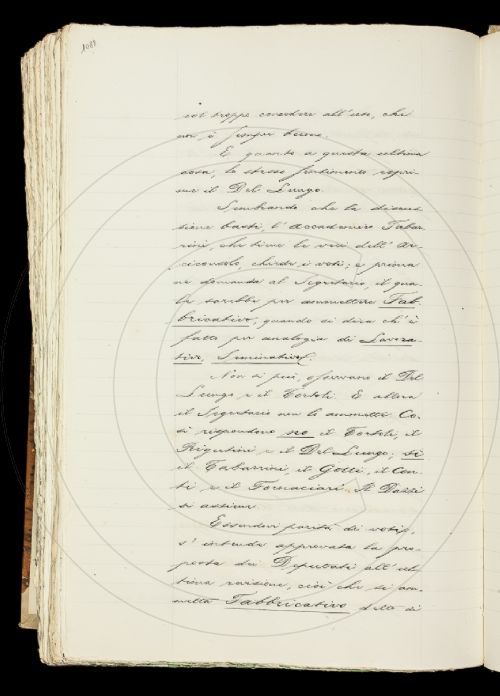 1084
col troppo concedere all'uso, che
non è sempre buono.
E quanto a questa ultima
cosa, lo stesso sentimento espri-
me il Del Lungo.
Sembrando che la discus-
sione basti, l'Accademico Tabar-
rini, che tiene le veci dell'Ar-
ciconsolo, chiede i voti; e prima
ne domanda al Segretario, il qua-
le sarebbe per ammettere Fab-
bricativo, quando si dica ch'è
fatto per analogia di Lavora-
tivo, Seminativo.
Non si può, osservano il Del
Lungo e il Tortoli. E allora
il Segretario non lo ammette. Co-
sì rispondono no il Tortoli, il
Rigutini e il Del Lungo: sì
il Tabarrini, il Gotti, il Con-
ti e il Fornaciari. Il Dazzi
si astiene.
Essendovi parità di voti,
s'intende approvata la pro-
posta dei Deputati all'ul-
tima revisione, cioè che si am-
metta Fabbricativo detto di